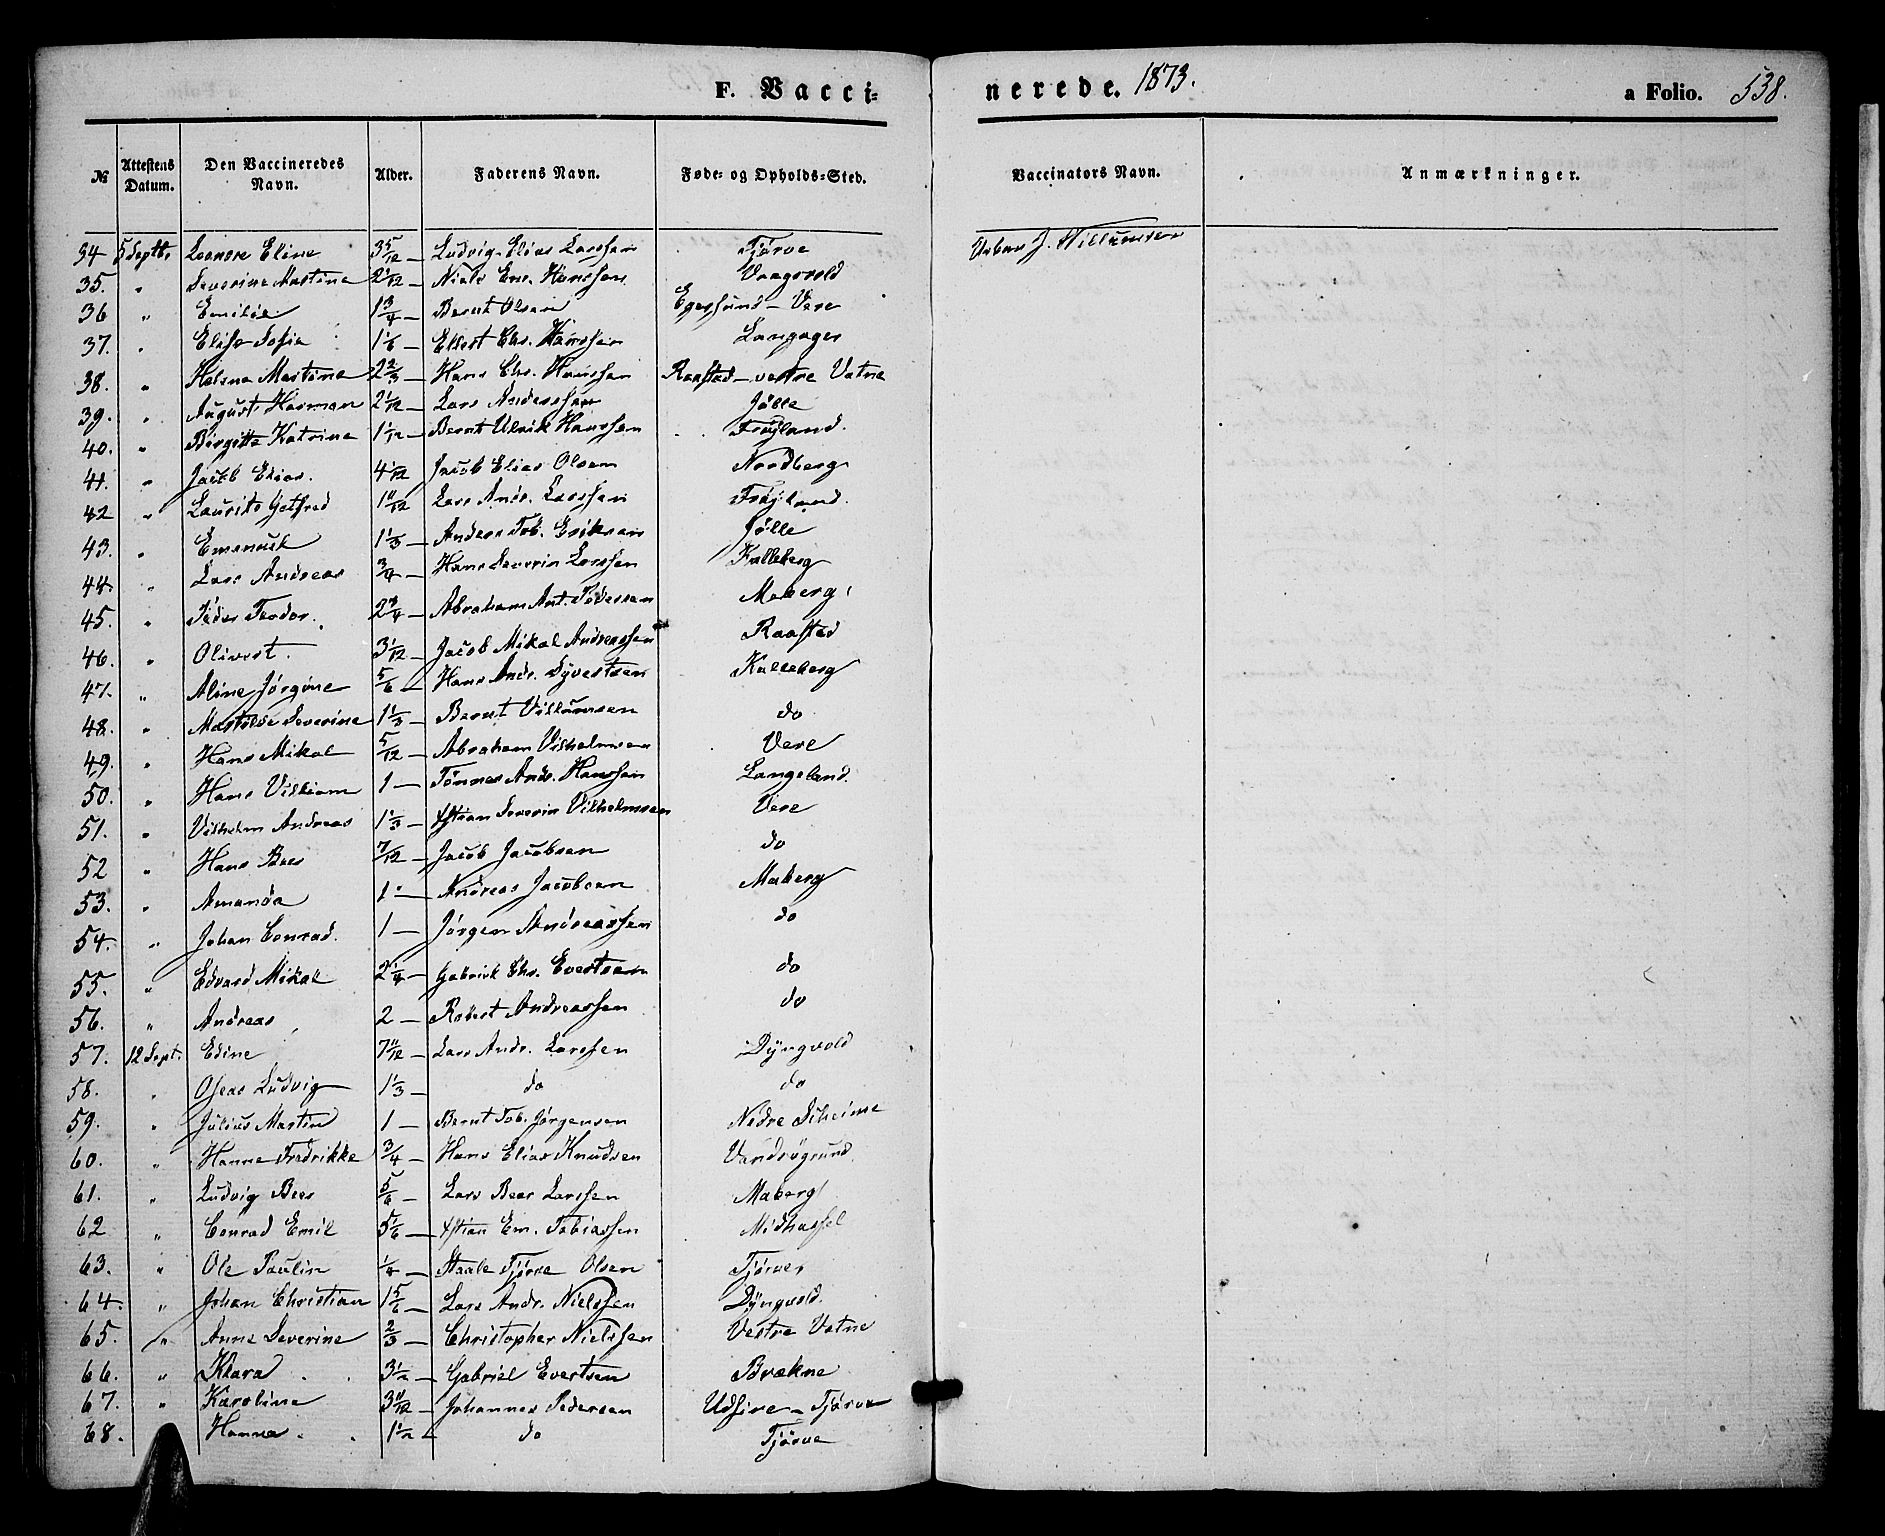 F. Vacci=nerede. 1873. a Folio. 538.
№ Attestens Datum. Den Vaccineredes Navn. Alder. Faderens Navn. Føde- og Opholds-Sted. Vaccinators Navn. Anmærkninger.
34 5 Septb. Leonore Eline 3 5/12 — Ludvig Elias Larssen Tjørve J. Villumsen
35. " Severine Mastine 2 1/12 — Niels Em. Hanssen Vaagsvold
36 " Emilie 1 3/4 — Bernt Olsen Egersund - Vere
37. " Elise Sofie 1 1/6 — Ellert Chr. Hanssen Langager
38. " Helene Martine 2 2/3 — Hans Chr. Hanssen Raastad - vestre Vatne
39. " August Herman 2 1/12 — Lars Anderssen Jølle
40. " Birgitte Katrine 1 1/12 — Bernt Ulrik Hanssen Frøyland.
41. " Jacob Elias. 4 1/12 Jacob Elias Olsen Nordberg
42 " Laurits Gotfred 1 11/12 Lars Andr. Larssen Frøyland.
43. " Emanuel 1 1/3 — Anders Tob. Eriksen Jølle
44. " Lars Andreas 3/4 — Hans Severin Larssen Kalleberg
45. " Peder Teodor. 2 3/4 — Abraham Ant. Pedersen Maberg
46. " Olivert. 3 1/12 — Jacob Mikal Andreassen Raastad
47. " Aline Jørgine 5/6 — Hans Andr. Syvertsen Kalleberg
48. " Matilde Severine 1 1/3 — Bernt Villumsen do
49. " Hans Mikal 5/12 — Abraham Vilhelmsen Vere
50. " Hans Villiam 1 — Tønnes Andr. Hanssen Langeland.
51. " Vilhelm Andreas 1 1/3 — Xstian Severin Vilhelmsen Vere
52 " Hans Beer 7/12 — Jacob Jacobsen do
53. " Amanda 1 — Andreas Jacobsen Maberg
54. " Johan Conrad. 1 — Jørgen Andreassen do
55. " Edvard Mikal 2 1/4 — Gabriel Chr. Evertsen do
56. " Andreas 2 — Robert Andreassen do
57. 12 Sept. Edine 7 11/12 — Lars Andr. Larssen Dyngvold
58. " Oseas Ludvig 1 1/3 — do do
59. " Julius Martin 1 — Bernt Tob. Jørgensen Nedre Skeime
60. " Hanne Fredrikke 3/4 — Hans Elias Knudsen Vandrøgrund
61. " Ludvig Beer 5/6 — Lars Beer Larssen Maberg
62 " Conrad Emil 5 1/6 — Xstian Em. Tobiassen Midhassel
63. " Ole Paulin 1/4 — Staale Tjørve Olsen Tjørve
64. " Johan Christian 1 5/6 — Lars Andr. Nielssen Dyngvold.
65. " Anne Severine 2/3 — Christopher Nielssen Vestre Vatne
66. " Klara 3 1/2 — Gabriel Evertsen Brækne
67. " Karoline 3 11/12 — Johannes Pedersen Udsire - Tjørve
68. " Hanna 1 1/2 — do Tjørve